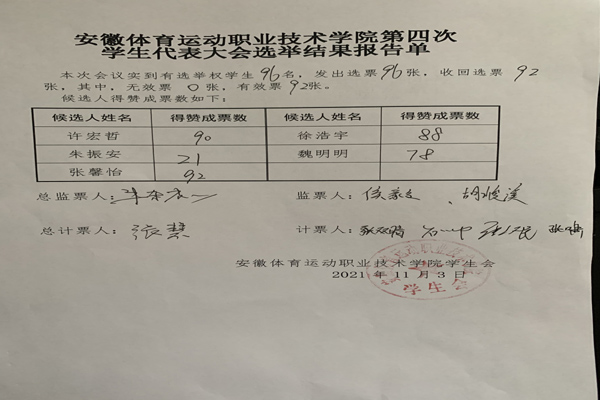 安徽体育运动职业技术学院第四次
学生代表大会选举结果报告单
本次会议实到有选举权学生96名，发出选票96张，收回选票92
张，其中，无效票 0张，有效票92张。
候选人得赞成票数如下：
候选人姓名 得赞成票数 候选人姓名 得赞成票数
许宏哲 90 徐浩宇 88
朱振安 21 魏明明 78
张馨怡 92
总监票人： 监票人：
总计票人：张慧 计票人：
安徽体育运动职业技术学院学生会
2021 年 11 月 3 日
学生会